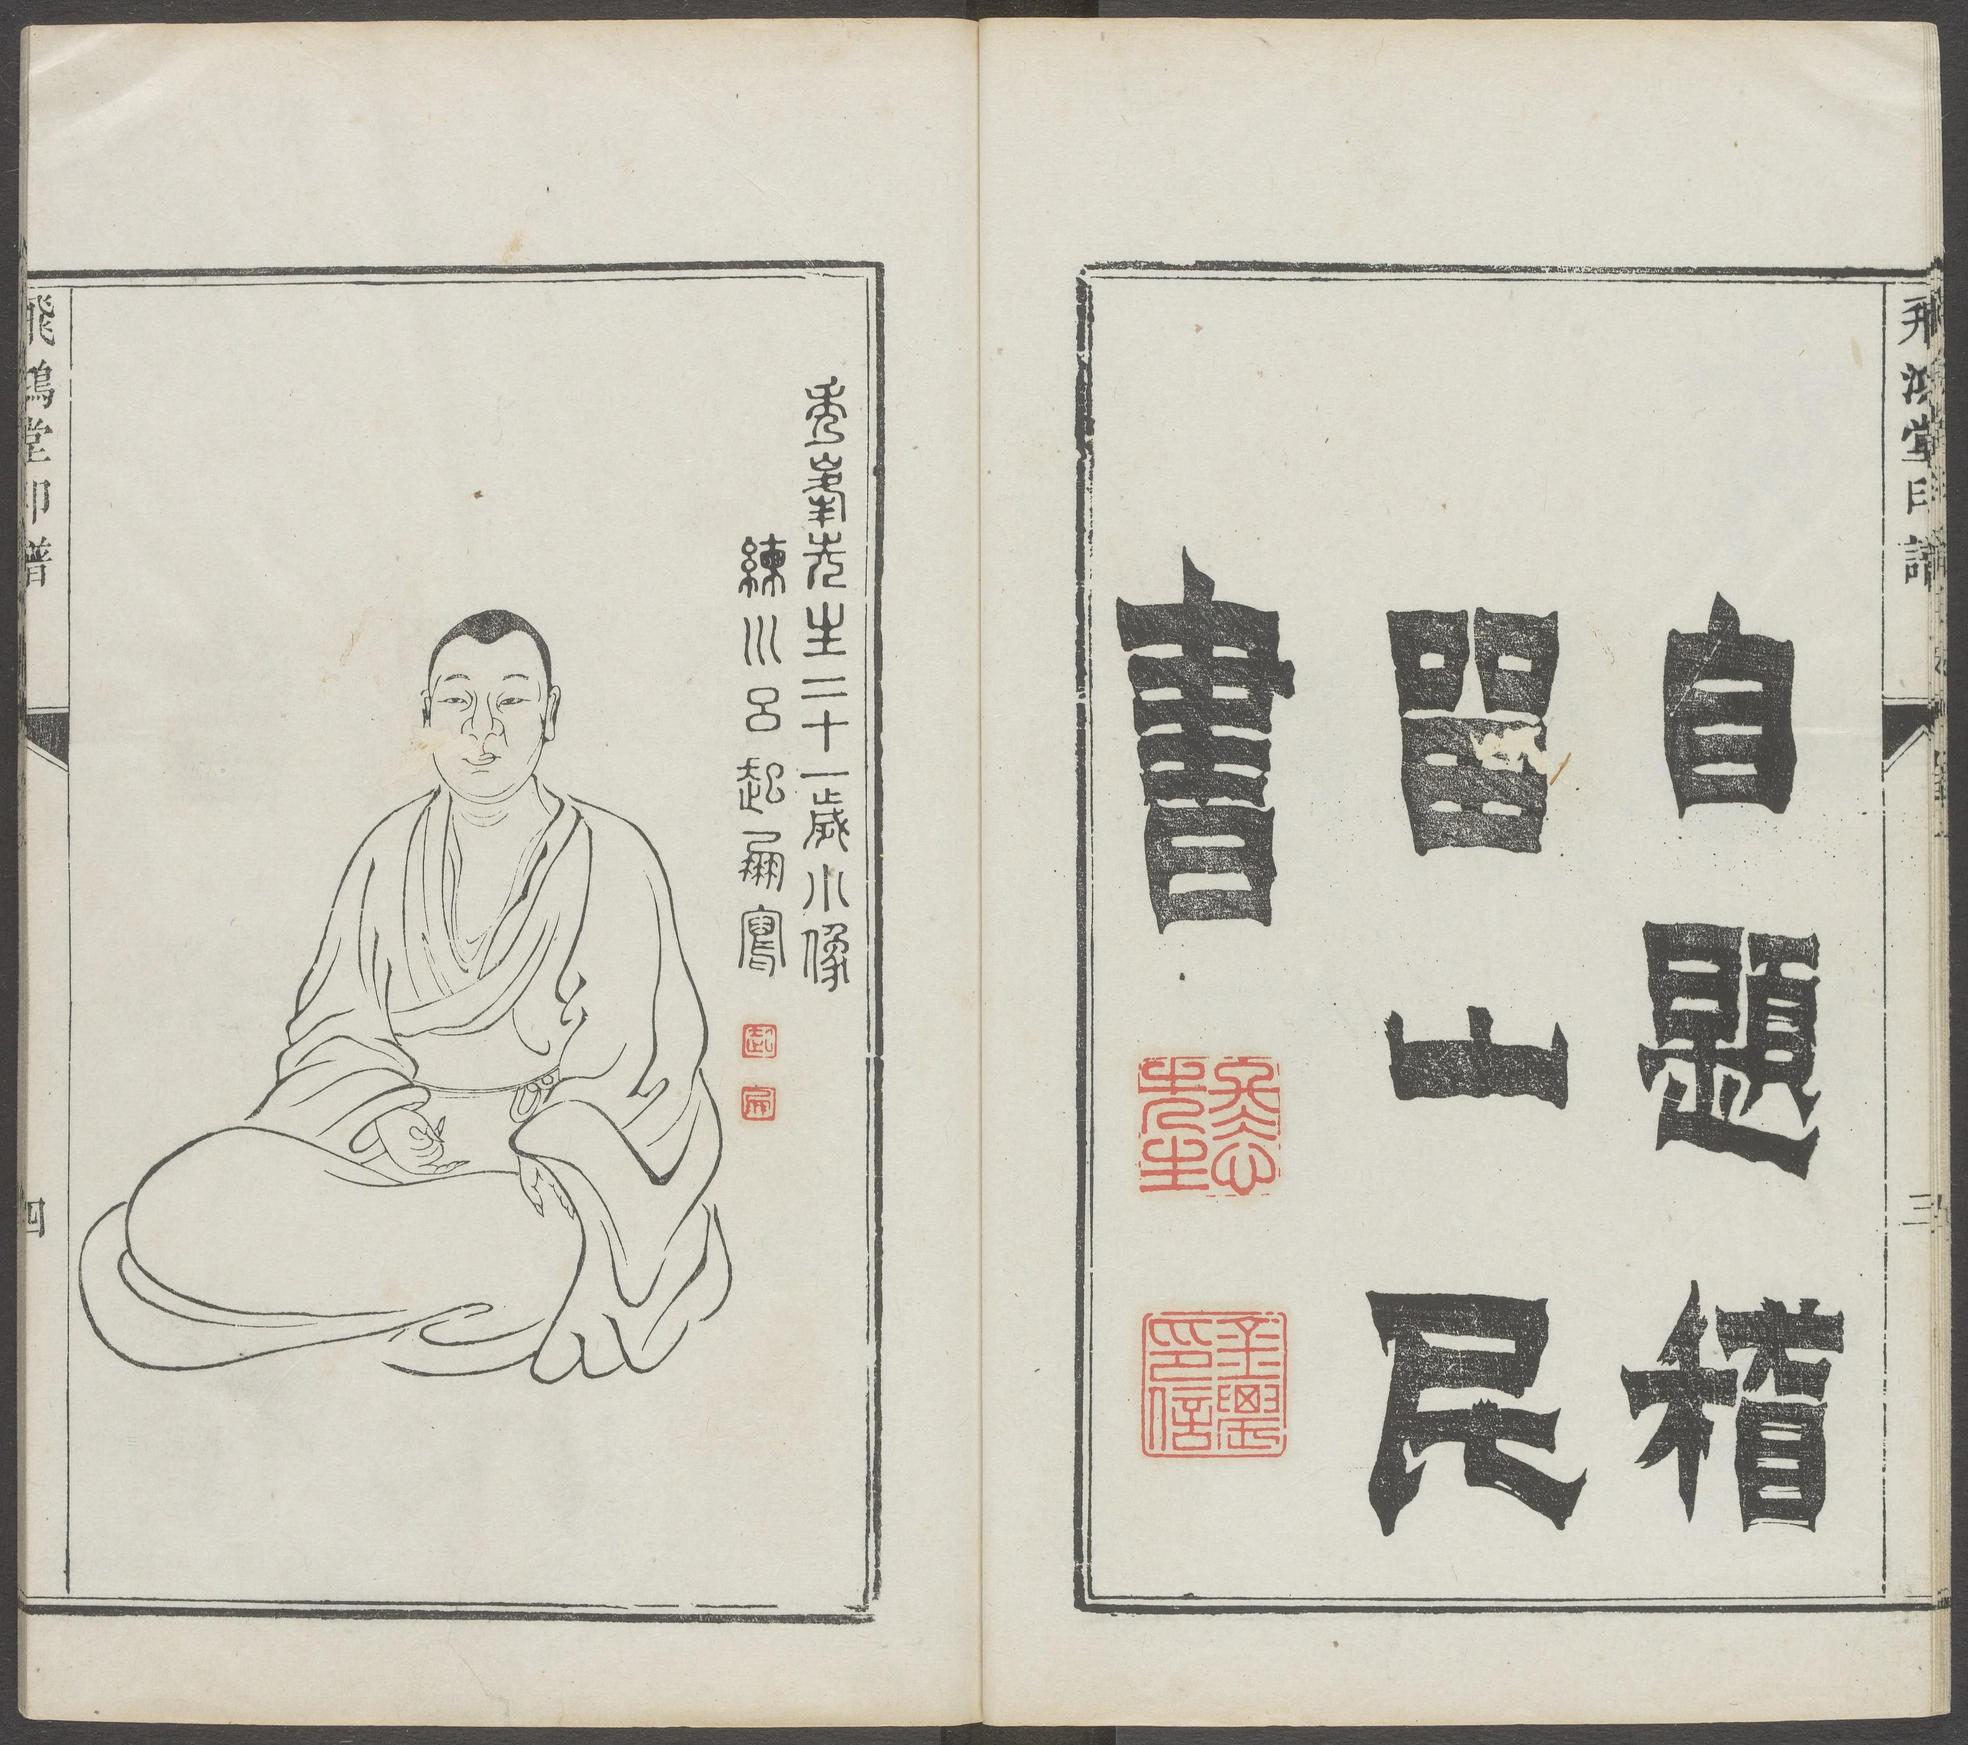 飛鴻堂印譜
三
自題稽
留山民
書
冬心先生
金農印信
秀峯先生二十一歲小像
練川呂起寫
起
飛鴻堂印譜
四